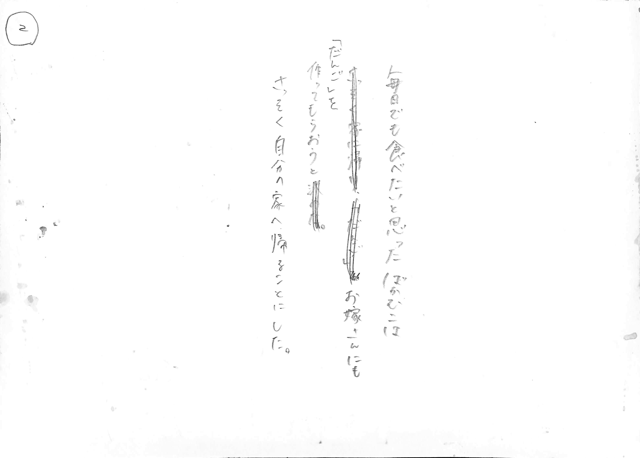 2
毎日でも食べたいと思ったばかむこは
お嫁さんにも
「だんご」を
作ってもらおうと
さっそく自分の家へ帰ることにした。